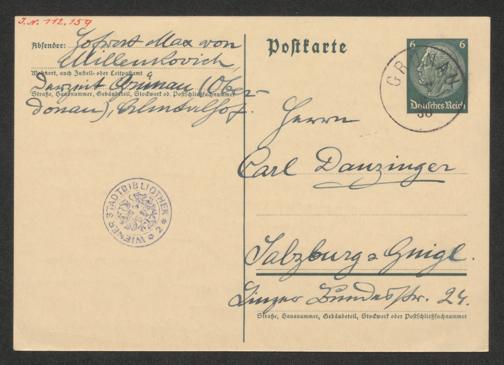 I.N. 112.159
Absender: Hofrat Max von
Millenkovich
Wohnort, auch Zustell- oder Leitpostamt
Derzeit (Ober-
Straße, Hausnummer, Gebäudeteil, Stockwerk od. Postschließfachnummer
donau), Almtalhof.
Postkarte
6 6
Deutsches Reich
Herrn
Carl Danzinger
Salzburg-Gnigl.
Linzer Bundesstr. 24.
Straße, Hausnummer, Gebäudeteil, Stockwerk oder Postschließfachnummer
WIENER STADTBIBLIOTHEK